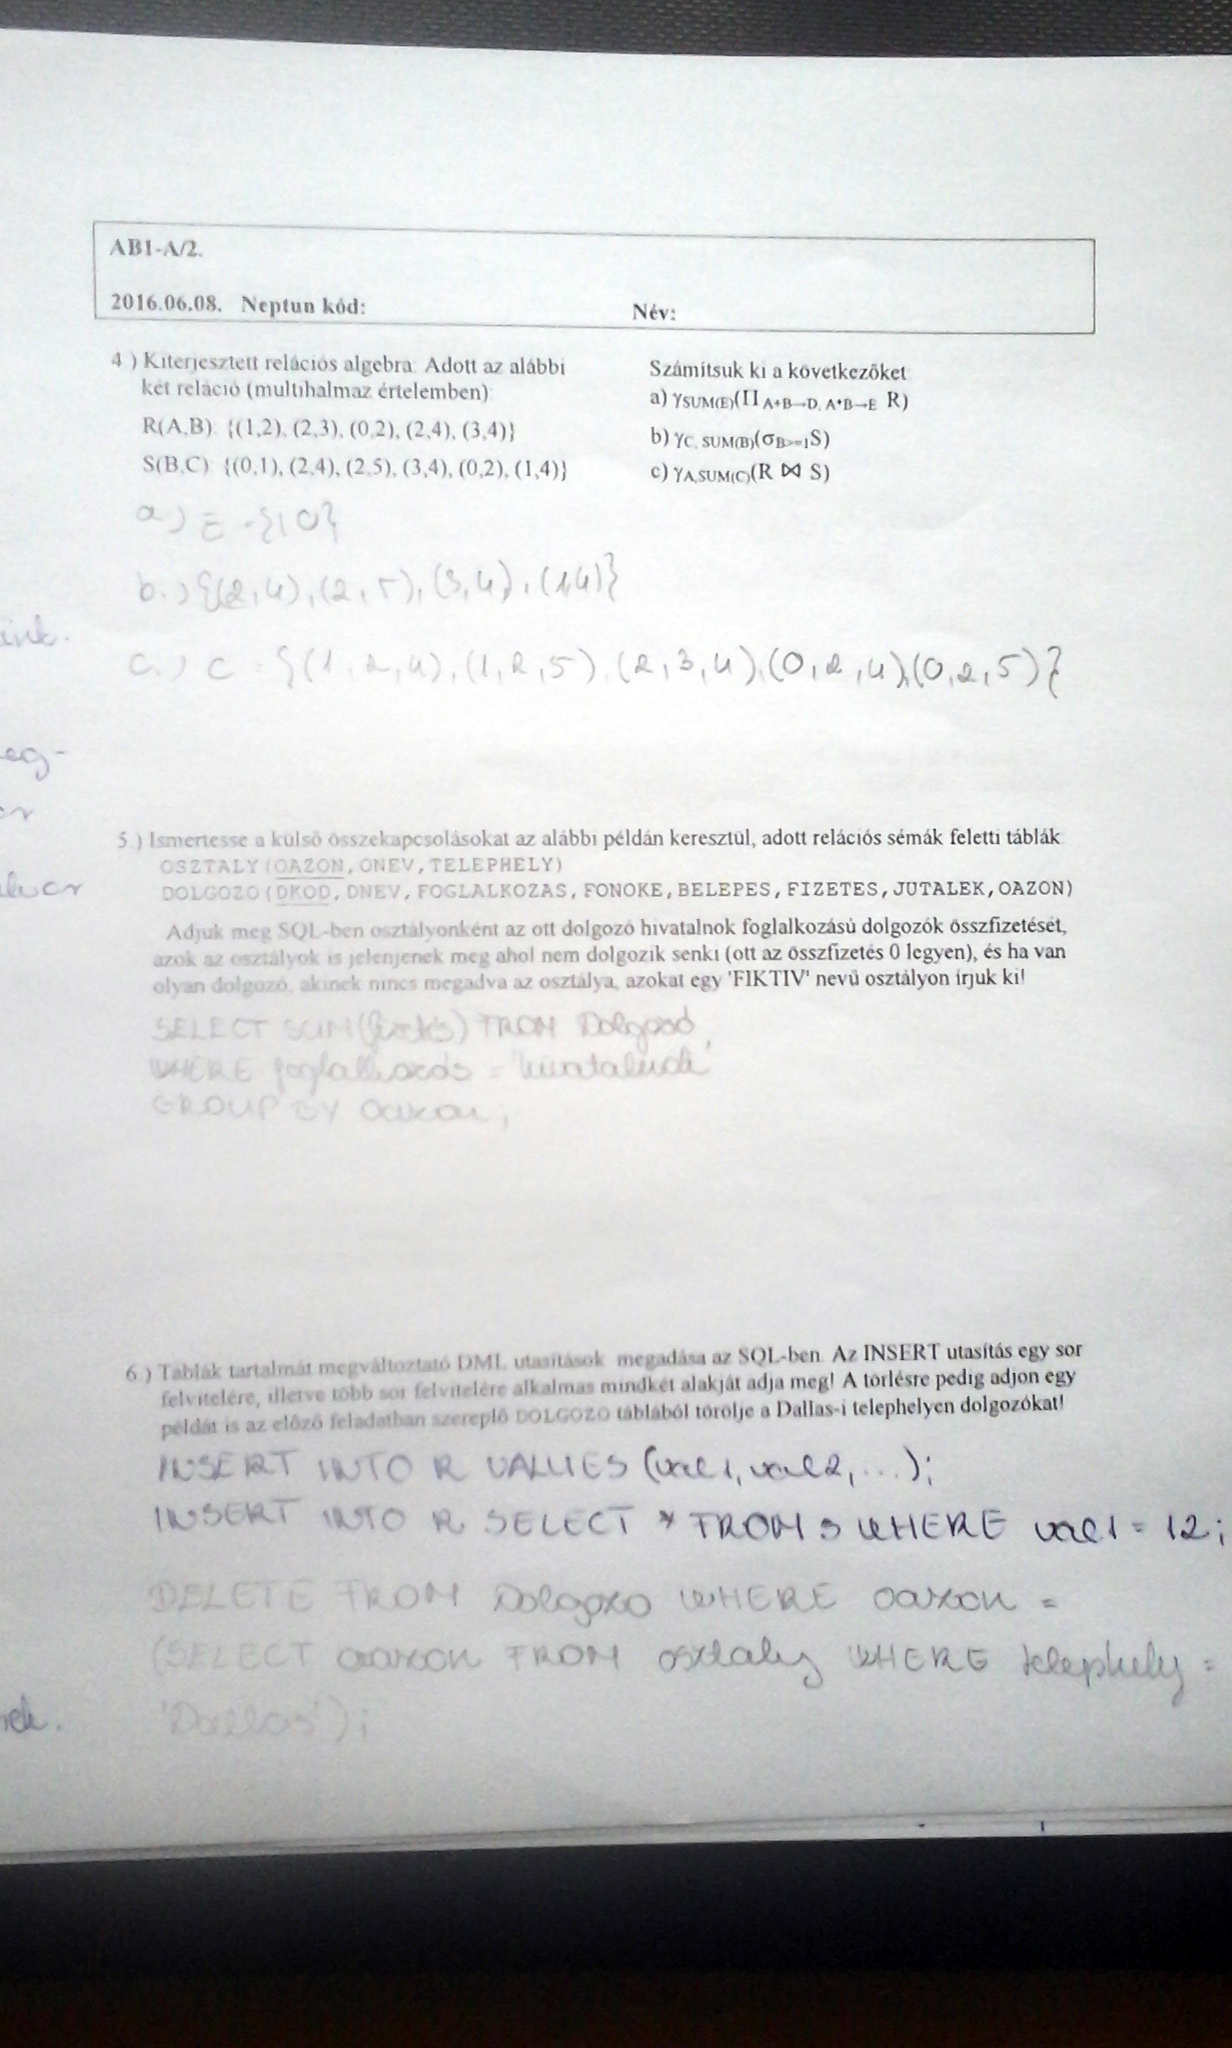 AB1-A/2.
2016.06.08. Neptun kód: Név:
4 ) Kiterjesztett relációs algebra: Adott az alábbi
két reláció (multihalmaz értelemben)
R(A,B): {(1,2), (2,3), (0,2), (2,4), (3,4)}
S(B,C): {(0,1), (2,4), (2,5), (3,4), (0,2), (1,4)}
Számítsuk ki a következőket
a) γSUM(E)(Π A+B→D, A*B→E R)
b) γC, SUM(B)(σB>=1S)
c) γA,SUM(C)(R ⋈ S)
a.) E = {10}
b.) {(2,4), (2,5), (3,4), (1,4)}
c.) C = {(1,2,4), (1,2,5), (2,3,4), (0,2,4), (0,2,5)}
eg-
5.) Ismertesse a külső összekapcsolásokat az alábbi példán keresztül, adott relációs sémák feletti táblák
OSZTALY(OAZON, ONEV, TELEPHELY)
DOLGOZO(DKOD, DNEV, FOGLALKOZAS, FONOKE, BELEPES, FIZETES, JUTALEK, OAZON)
Adjuk meg SQL-ben osztályonként az ott dolgozó hivatalnok foglalkozású dolgozók összfizetését,
azok az osztályok is jelenjenek meg ahol nem dolgozik senki (ott az összfizetés 0 legyen), és ha van
olyan dolgozó, akinek nincs megadva az osztálya, azokat egy 'FIKTIV' nevű osztályon írjuk ki!
SELECT SUM(fizetés) FROM Dolgozó
WHERE foglalkozás = 'hivatalnok'
GROUP BY oazon;
6.) Táblák tartalmát megváltoztató DML utasítások megadása az SQL-ben. Az INSERT utasítás egy sor
felvitelére, illetve több sor felvitelére alkalmas mindkét alakját adja meg! A törlésre pedig adjon egy
példát is az előző feladatban szereplő DOLGOZO táblából törölje a Dallas-i telephelyen dolgozókat!
INSERT INTO R VALUES (val1, val2, ...);
INSERT INTO R SELECT * FROM S WHERE val1 = 12;
DELETE FROM Dolgozo WHERE oazon =
(SELECT oazon FROM osztaly WHERE telephely =
'Dallas');